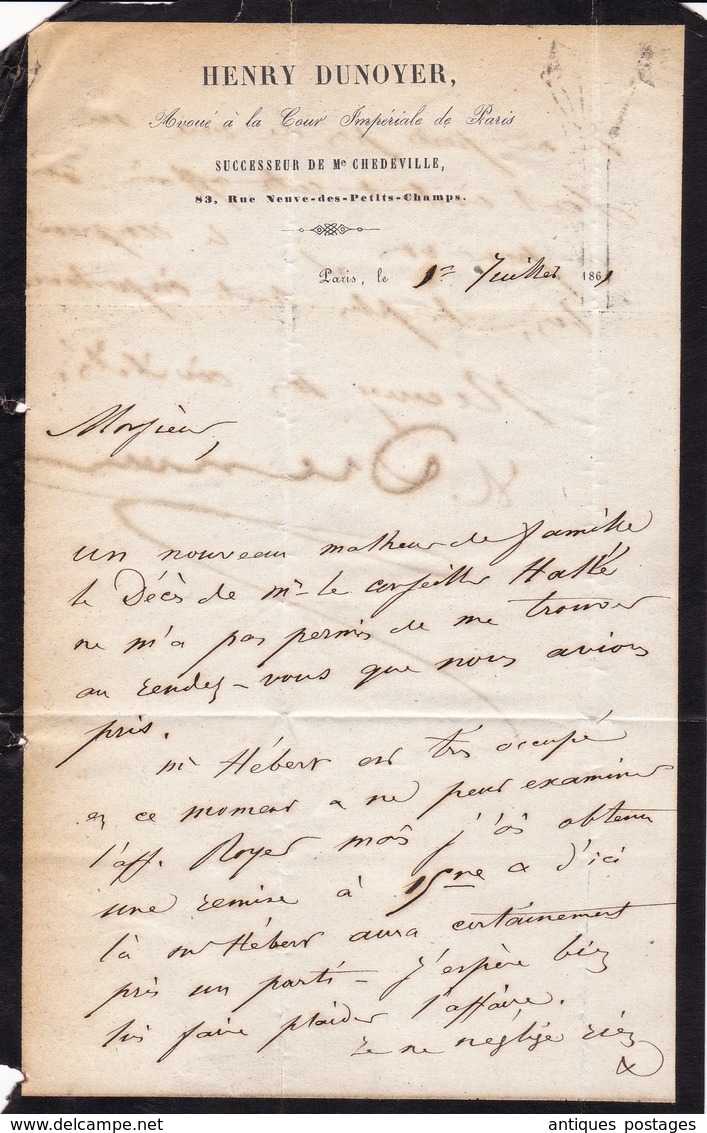 HENRY DUNOYER,
Avoué à la Cour Impériale de Paris
SUCCESSEUR DE Me CHEDEVILLE,
83, Rue Neuve-des-Petits-Champs.
Paris, le 1er Juillet 1861
Monsieur,
un nouveau malheur de famille
le Décès de mr le conseiller Hallé
ne m'a pas permis de me trouver
au rendez-vous que nous avions
pris.
mr Hébert est très occupé
en ce moment & ne peut examiner
l'aff. Royer mais j'ai obtenu
une remise à 15ne & d'ici
là mr Hébert aura certainement
pris un parti - J'espère bien
lui faire plaider l'affaire.
Je ne néglige rien
&
antiques postages